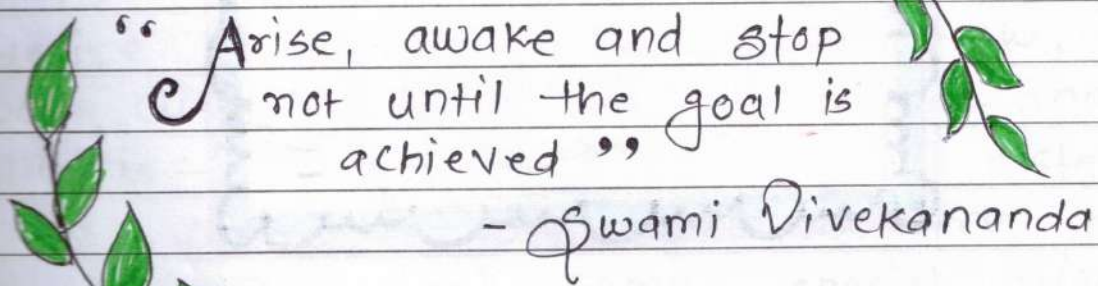 “ Arise, awake and stop
not until the goal is
achieved ”
- Swami Vivekananda